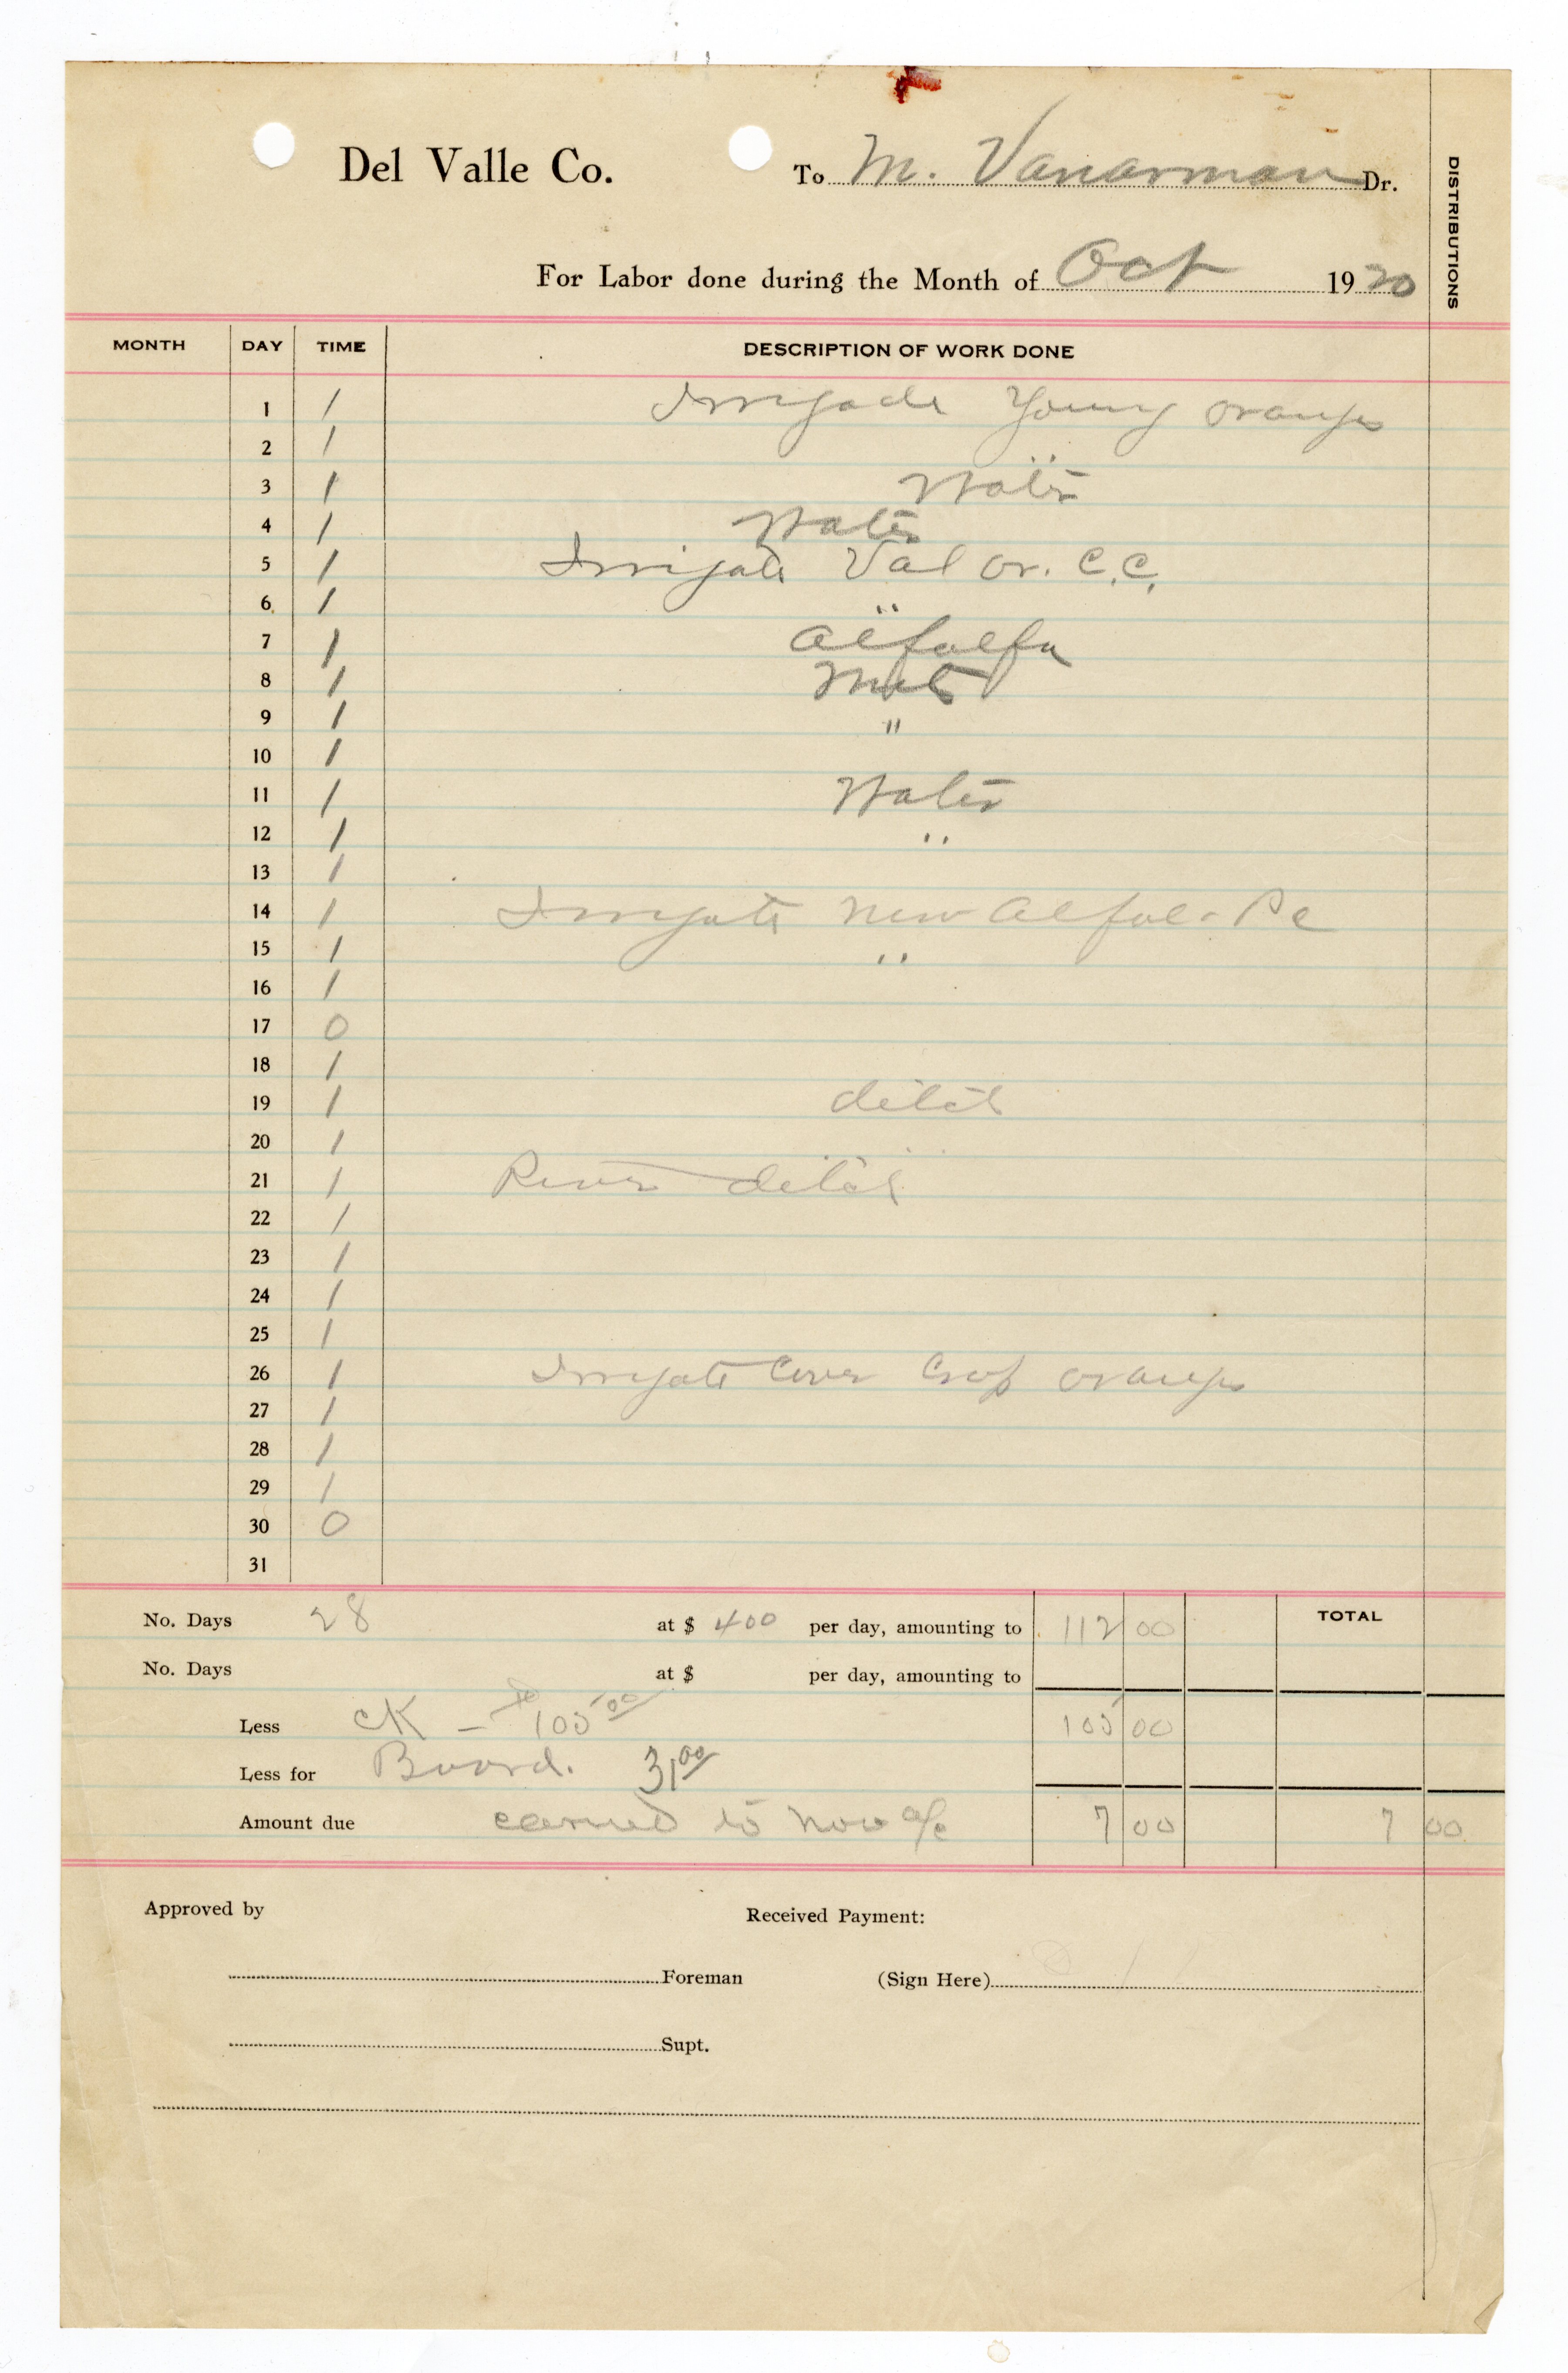 Del Valle Co. To M. Vanarman Dr.
For Labor done during the Month of Oct 1920
DISTRIBUTIONS
MONTH DAY TIME DESCRIPTION OF WORK DONE
1 1 Irrigade Young oranges
2 1 "
3 1 Water
4 1 Water
5 1 Irrigate Val or. C.C.
6 1 "
7 1 alfalfa
8 1
9 1 "
10 1
11 1 Water
12 1 "
13 1
14 1 Irrigate new alfal
15 1 "
16 1
17 0
18 1
19 1 ditch
20 1
21 1 River ditch
22 1
23 1
24 1
25 1
26 1 Irrigate Cover Crop oranges
27 1
28 1
29 1
30 0
31
No. Days 28 at $ 400 per day, amounting to 112 00 TOTAL
No. Days at $ per day, amounting to
Less CK - $105 00 105 00
Less for Board. 31 00
Amount due carried to Nov a/c 7 00 7 00
Approved by Received Payment:
Foreman (Sign Here)
Supt.